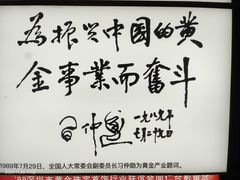 為振兴中国的黄
金事業而奮斗
习仲勋
一九八九年
七月二十九日
1989年7月29日，全国人大常委会副委员长习仲勋为黄金产业题词。